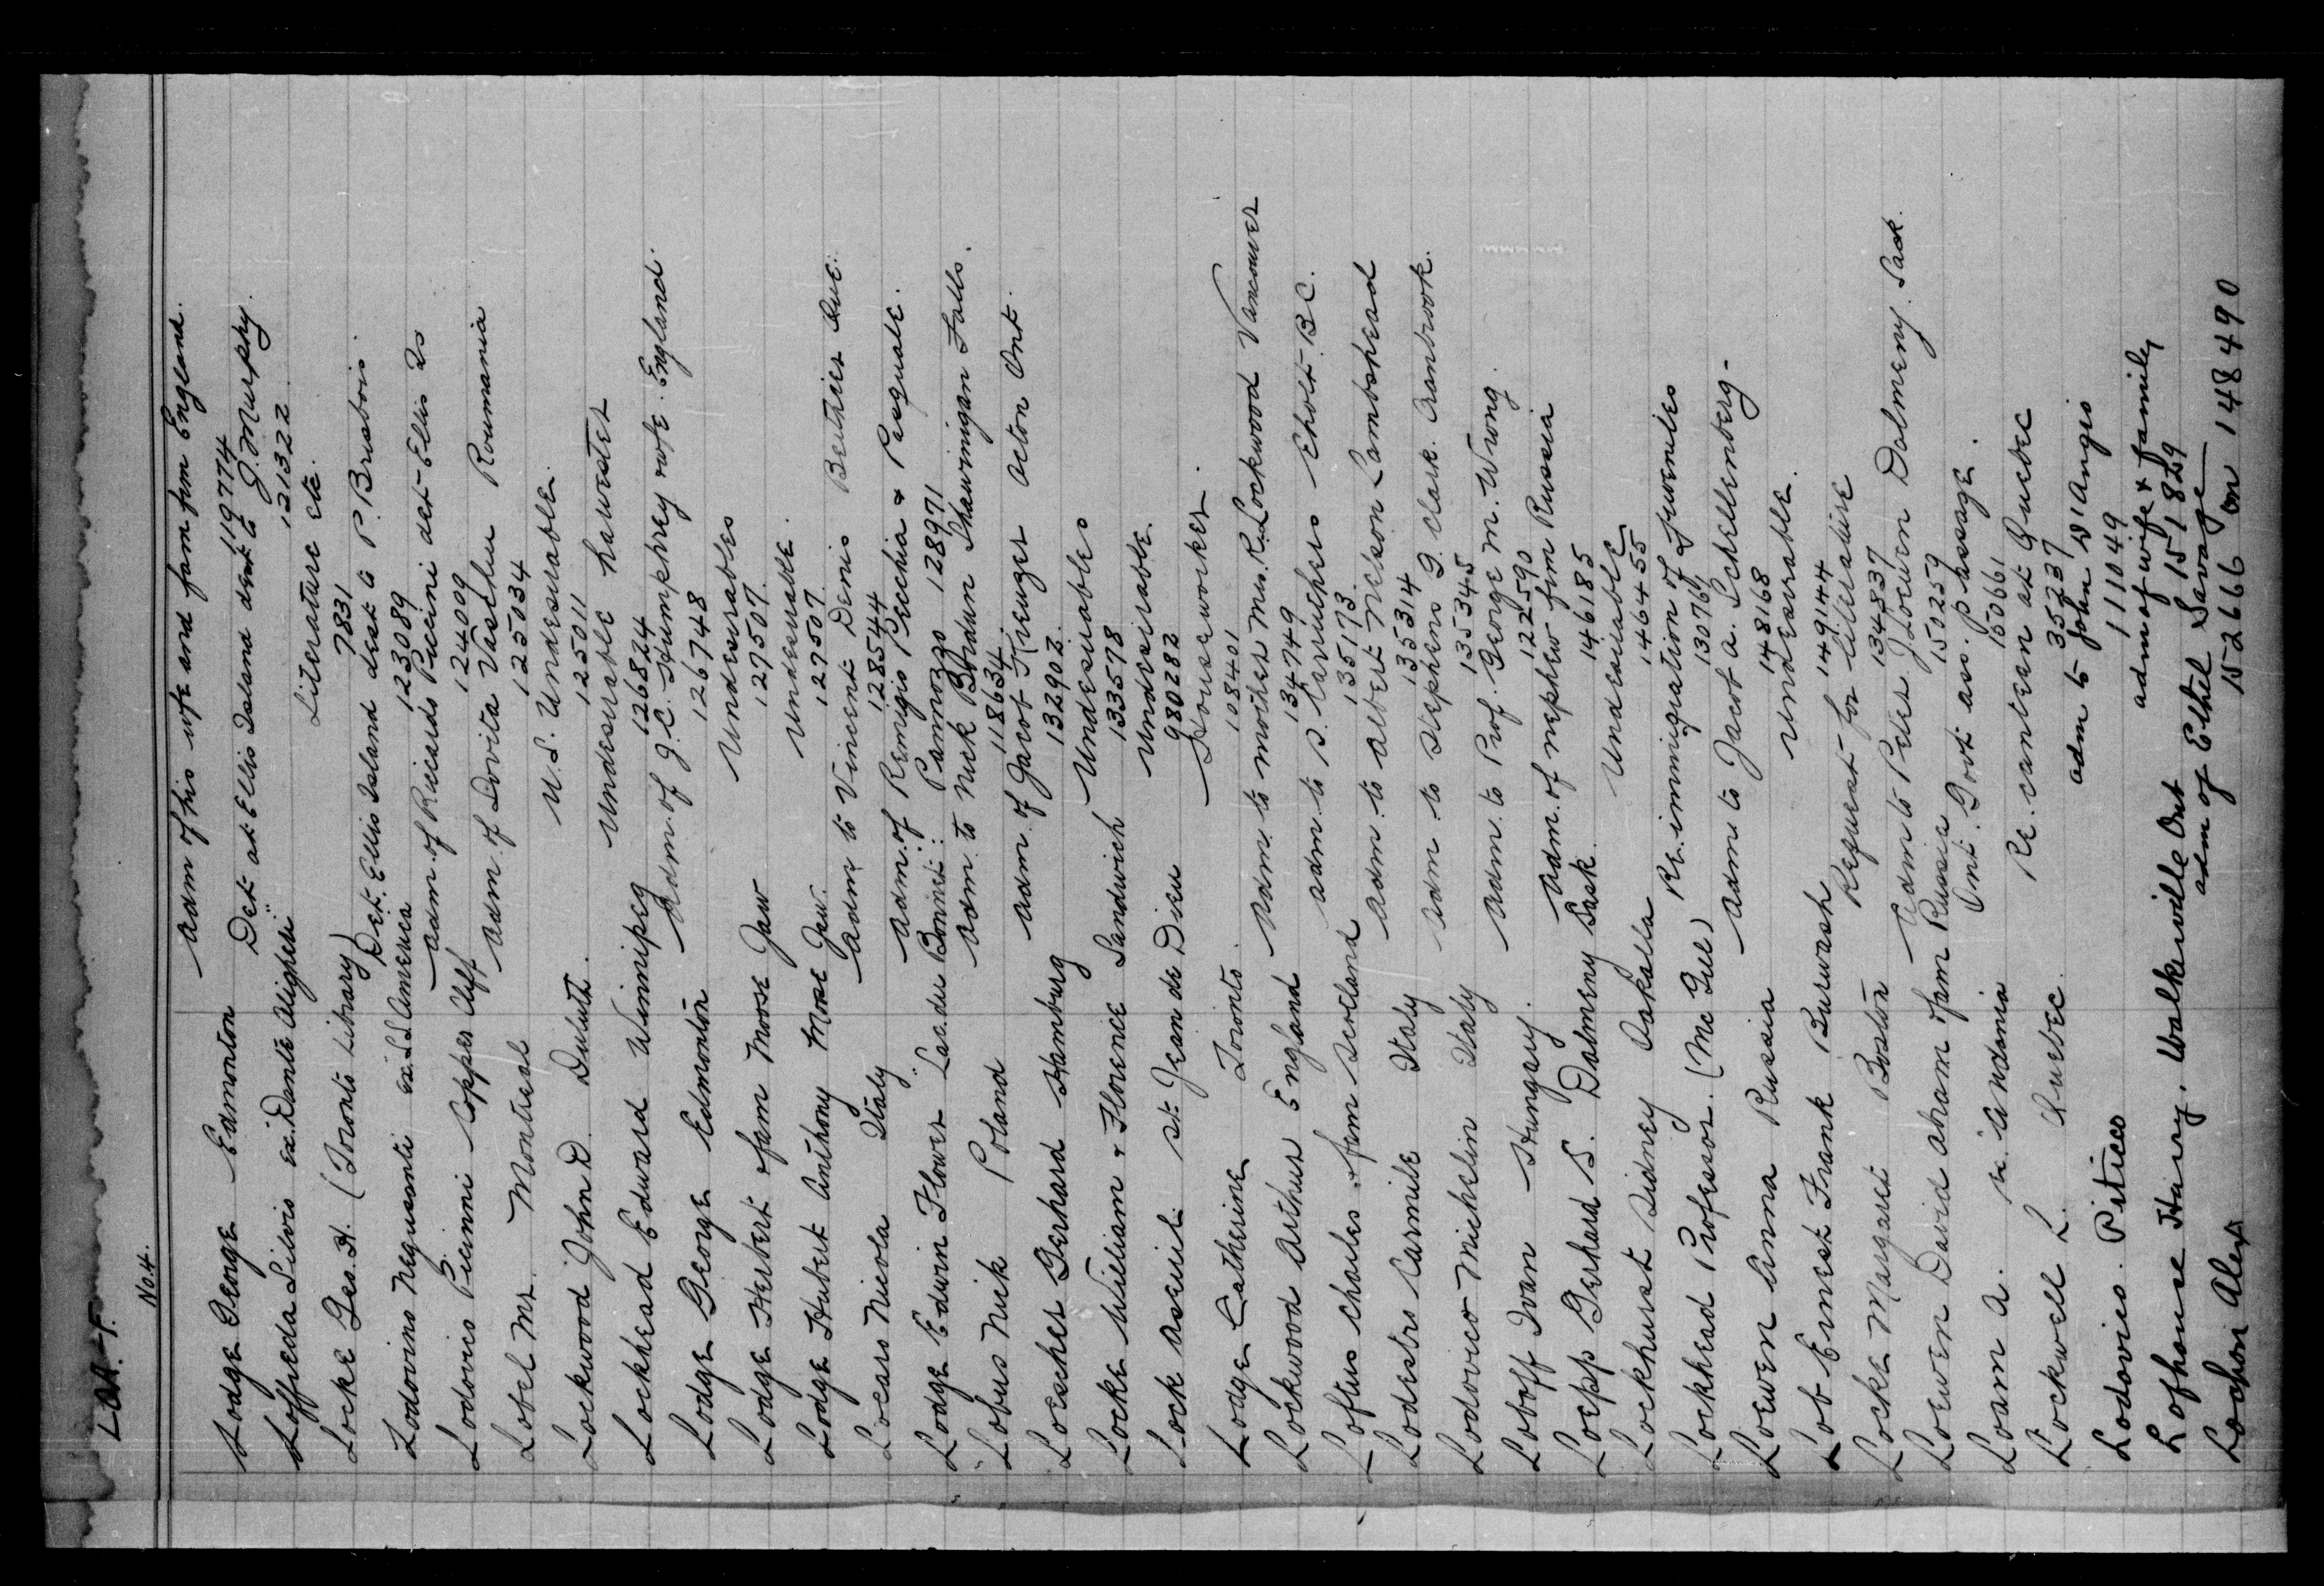 LOA-F.
No. 4.
Lodge George Edmonton Adm of his wife and fam from England.
119774
Loffreda Silvio ex. Dante Alighieri Det. at Ellis Island dest to J. Murphy.
121322
Locke Geo. H. (Toronto Library) Literature etc.
7831
Lodovino Neguesanti ex. S.S. America Det. Ellis Island dest to P. Brisbois.
123089
Lodovico Piccinni Copper Cliff Adm. of Riccardo Piccini det- Ellis Is
124009
Lobel Mr. Montreal Adm. of Dovita Vaschu Roumania
125034
Lockwood John D. Duluth. U.S. Undesirable.
125011
Lockhead Edward Winnipeg Undesirable harvester
126824
Lodge George Edmonton Adm. of J.C. Stumphrey wife. England.
126748
Lodge Herbert & fam Moose Jaw Undesirables
127507.
Lodge Hubert Anthony Moose Jaw. Undesirable.
127507
Locaro Nicola Italy Adm to Vincent Denis Berthier Que.
128544
Lodge Edwin Flower Lac du Bonnet. Adm. of Remigio Pecchia & Pasquale
Pannozzo 128971
Lobus Nick Poland Adm to Nick Bordun Shawinigan Falls.
118634
Loescher Gerhard Hamburg Adm. of Jacob Krenzer Acton Ont.
132902.
Locke William & Florence Sandwich Undesirables
133578
Lock Aseuil St. Jean de Dieu Undesirable
980282
Lodge Catherine Toronto. Houseworker.
108401
Lockwood Arthur England Adm. to mother Mrs. R. Lockwood Vancouver
134749
Loftus Charles & fam Scotland Adm. to S. Carruthers Eholt. B.C.
135173
Lodestro Carmile Italy Adm. to Albert Nelson Lambshead
135314
Lodovico Michelin Italy Adm to Stephens G. Clark. Cranbrook.
135345
Loboff Ivan Hungary. Adm. to Prof. George M. Wrong.
122590
Loepp Gerhard S. Dalmeny Sask. Adm. of nephew from Russia
146185
Lockhurst Sidney Oakalla Undesirable
146455
Lockhead Professor. (Mc Gill) Re. immigration of juveniles
130761
Loewen Anna Russia Adm to Jacob A. Schellenberg-
148168
Lob Ernest Frank Burwash Undesirable.
149144
Locke Margaret Boston Request for literature
134837
Loewen David Abram & fam Russia Adm to Peter J Loewen Dalmeny. Sask.
150259
Loam A. Ont. Govt ass. passage.
150661
Lockwell L. Quebec. Re. canteen at Quebec
35237
Lodovico. Peticco adm to John D'Angio
111049
Lofhouse Harry. Walkerville Ont adm of wife & family
151829
Lochori Alex adm of Ethel Savage
152666 on 148490